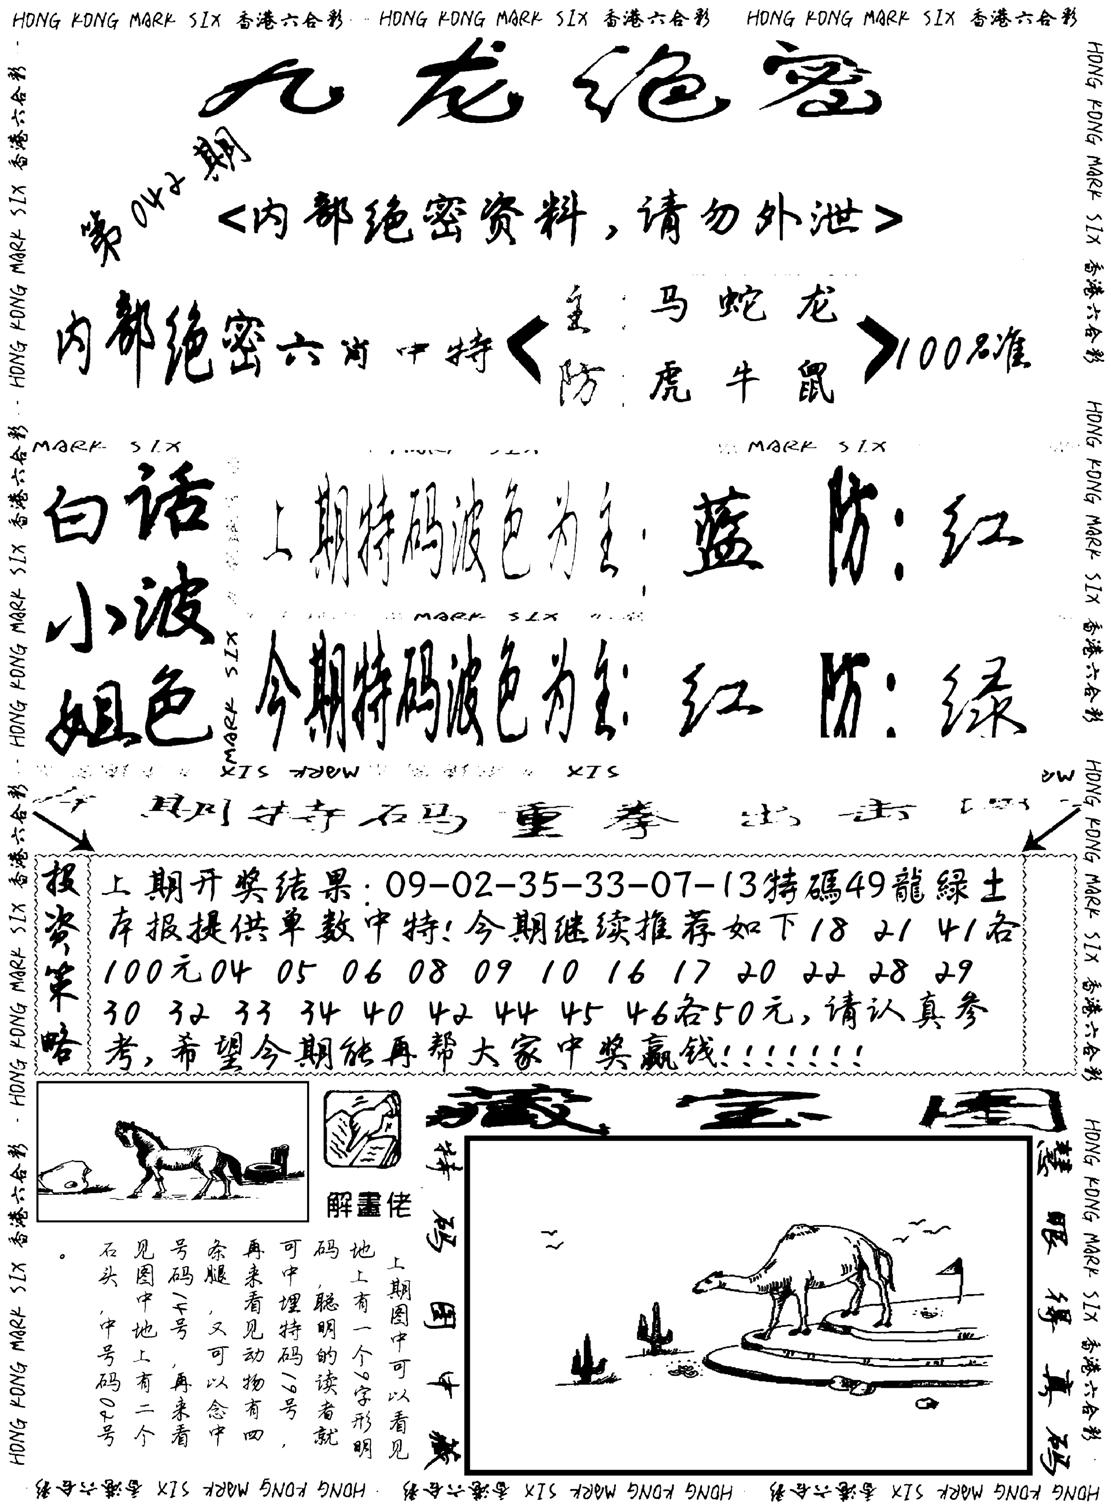 HONG KONG MARK SIX 香港六合彩 HONG KONG MARK SIX 香港六合彩 HONG KONG MARK SIX 香港六合彩
九龙绝密
第042期
<内部绝密资料,请勿外泄>
内部绝密六肖中特
主:马蛇龙
防:虎牛鼠
100%准
MARK SIX MARK SIX MARK SIX
白话
小波
姐色
上期特码波色为主:蓝 防:红
MARK SIX
今期特码波色为主:红 防:绿
MARK SIX
今期特码重拳出击
投资策略
上期开奖结果:09-02-35-33-07-13特碼49龍綠土
本报提供单数中特!今期继续推荐如下18 21 41各
100元04 05 06 08 09 10 16 17 20 22 28 29
30 32 33 34 40 42 44 45 46各50元,请认真参
考,希望今期能再帮大家中奖赢钱!!!!!!!
解畫佬
藏宝图
特码图中藏
慧眼得真码
上期图中可以看见
地上有一个9字形明
码,聪明的读者就
可中埋特码19号,
再来看见动物有四
条腿,又可以念中
号码14号,再来看
见图中地上有二个
石头,中号码02号
。
HONG KONG MARK SIX 香港六合彩 HONG KONG MARK SIX 香港六合彩 HONG KONG MARK SIX 香港六合彩